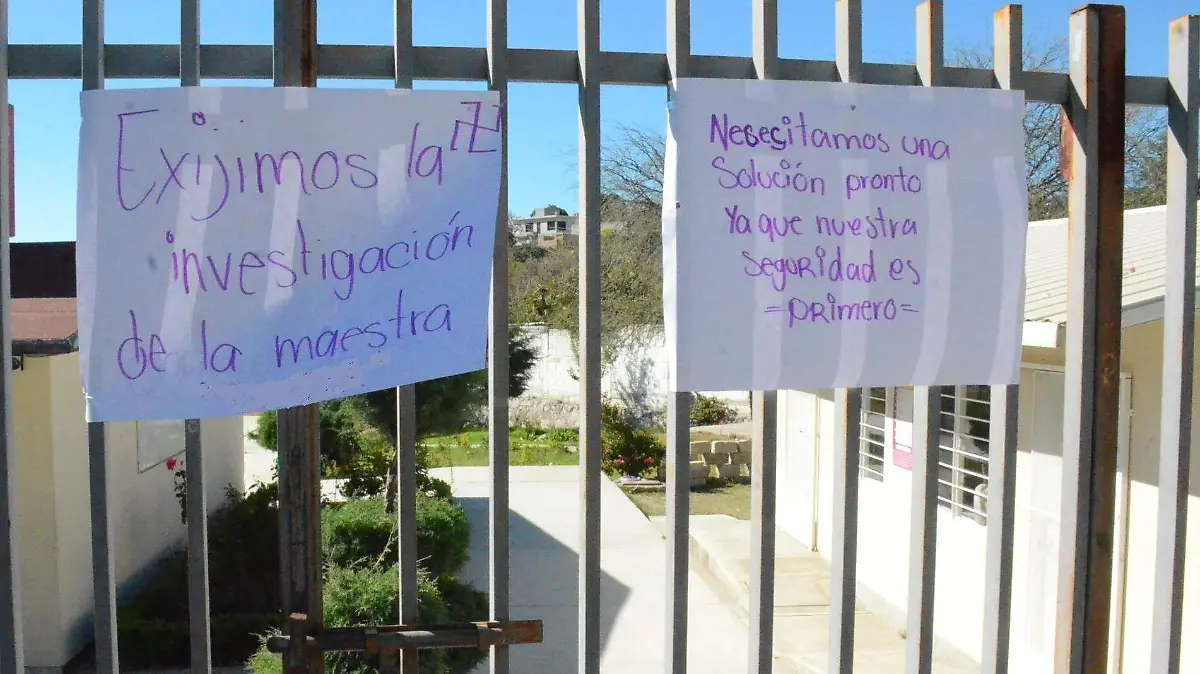 Exijimos la
investigación
de la maestra
Necesitamos una
Solución pronto
Ya que nuestra
seguridad es
=primero=